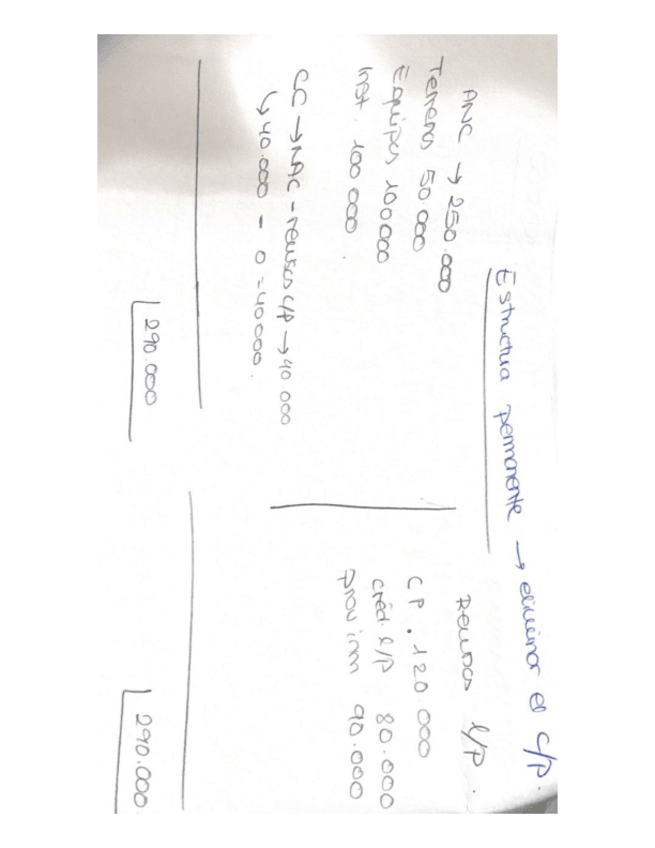 Estructura permanente → eliminar el c/p.
ANC → 250.000
Terrenos 50.000
Equipos 100000
Inst. 100 000
CC → NAC - recursos c/p → 40.000
↳ 40.000 - 0 = 40000.
290.000
Recursos l/p.
CP. 120.000
créd. l/p 80.000
prov inm 90.000
290.000